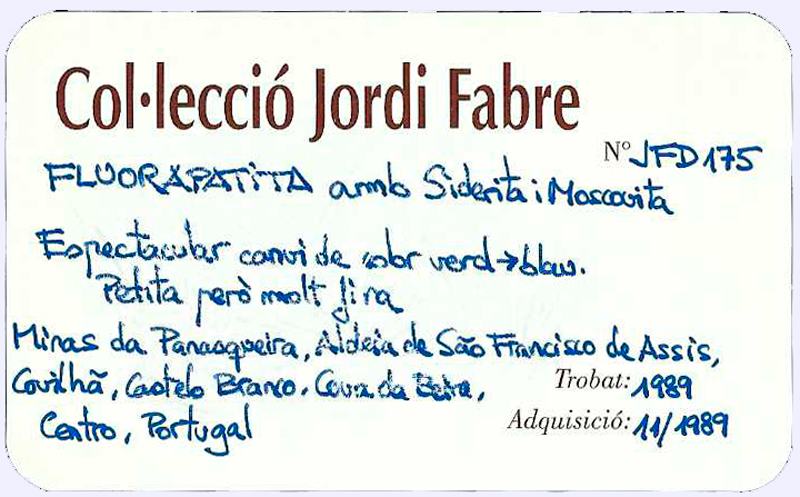 Col·lecció Jordi Fabre
Nº JFD175
FLUORAPATITA amb Siderita i Moscovita
Espectacular canvi de color verd→blau.
Petita però molt fina
Minas da Panasqueira, Aldeia de São Francisco de Assis,
Covilhã, Castelo Branco, Cova da Beira,
Trobat: 1989
Centro, Portugal
Adquisició: 11/1989